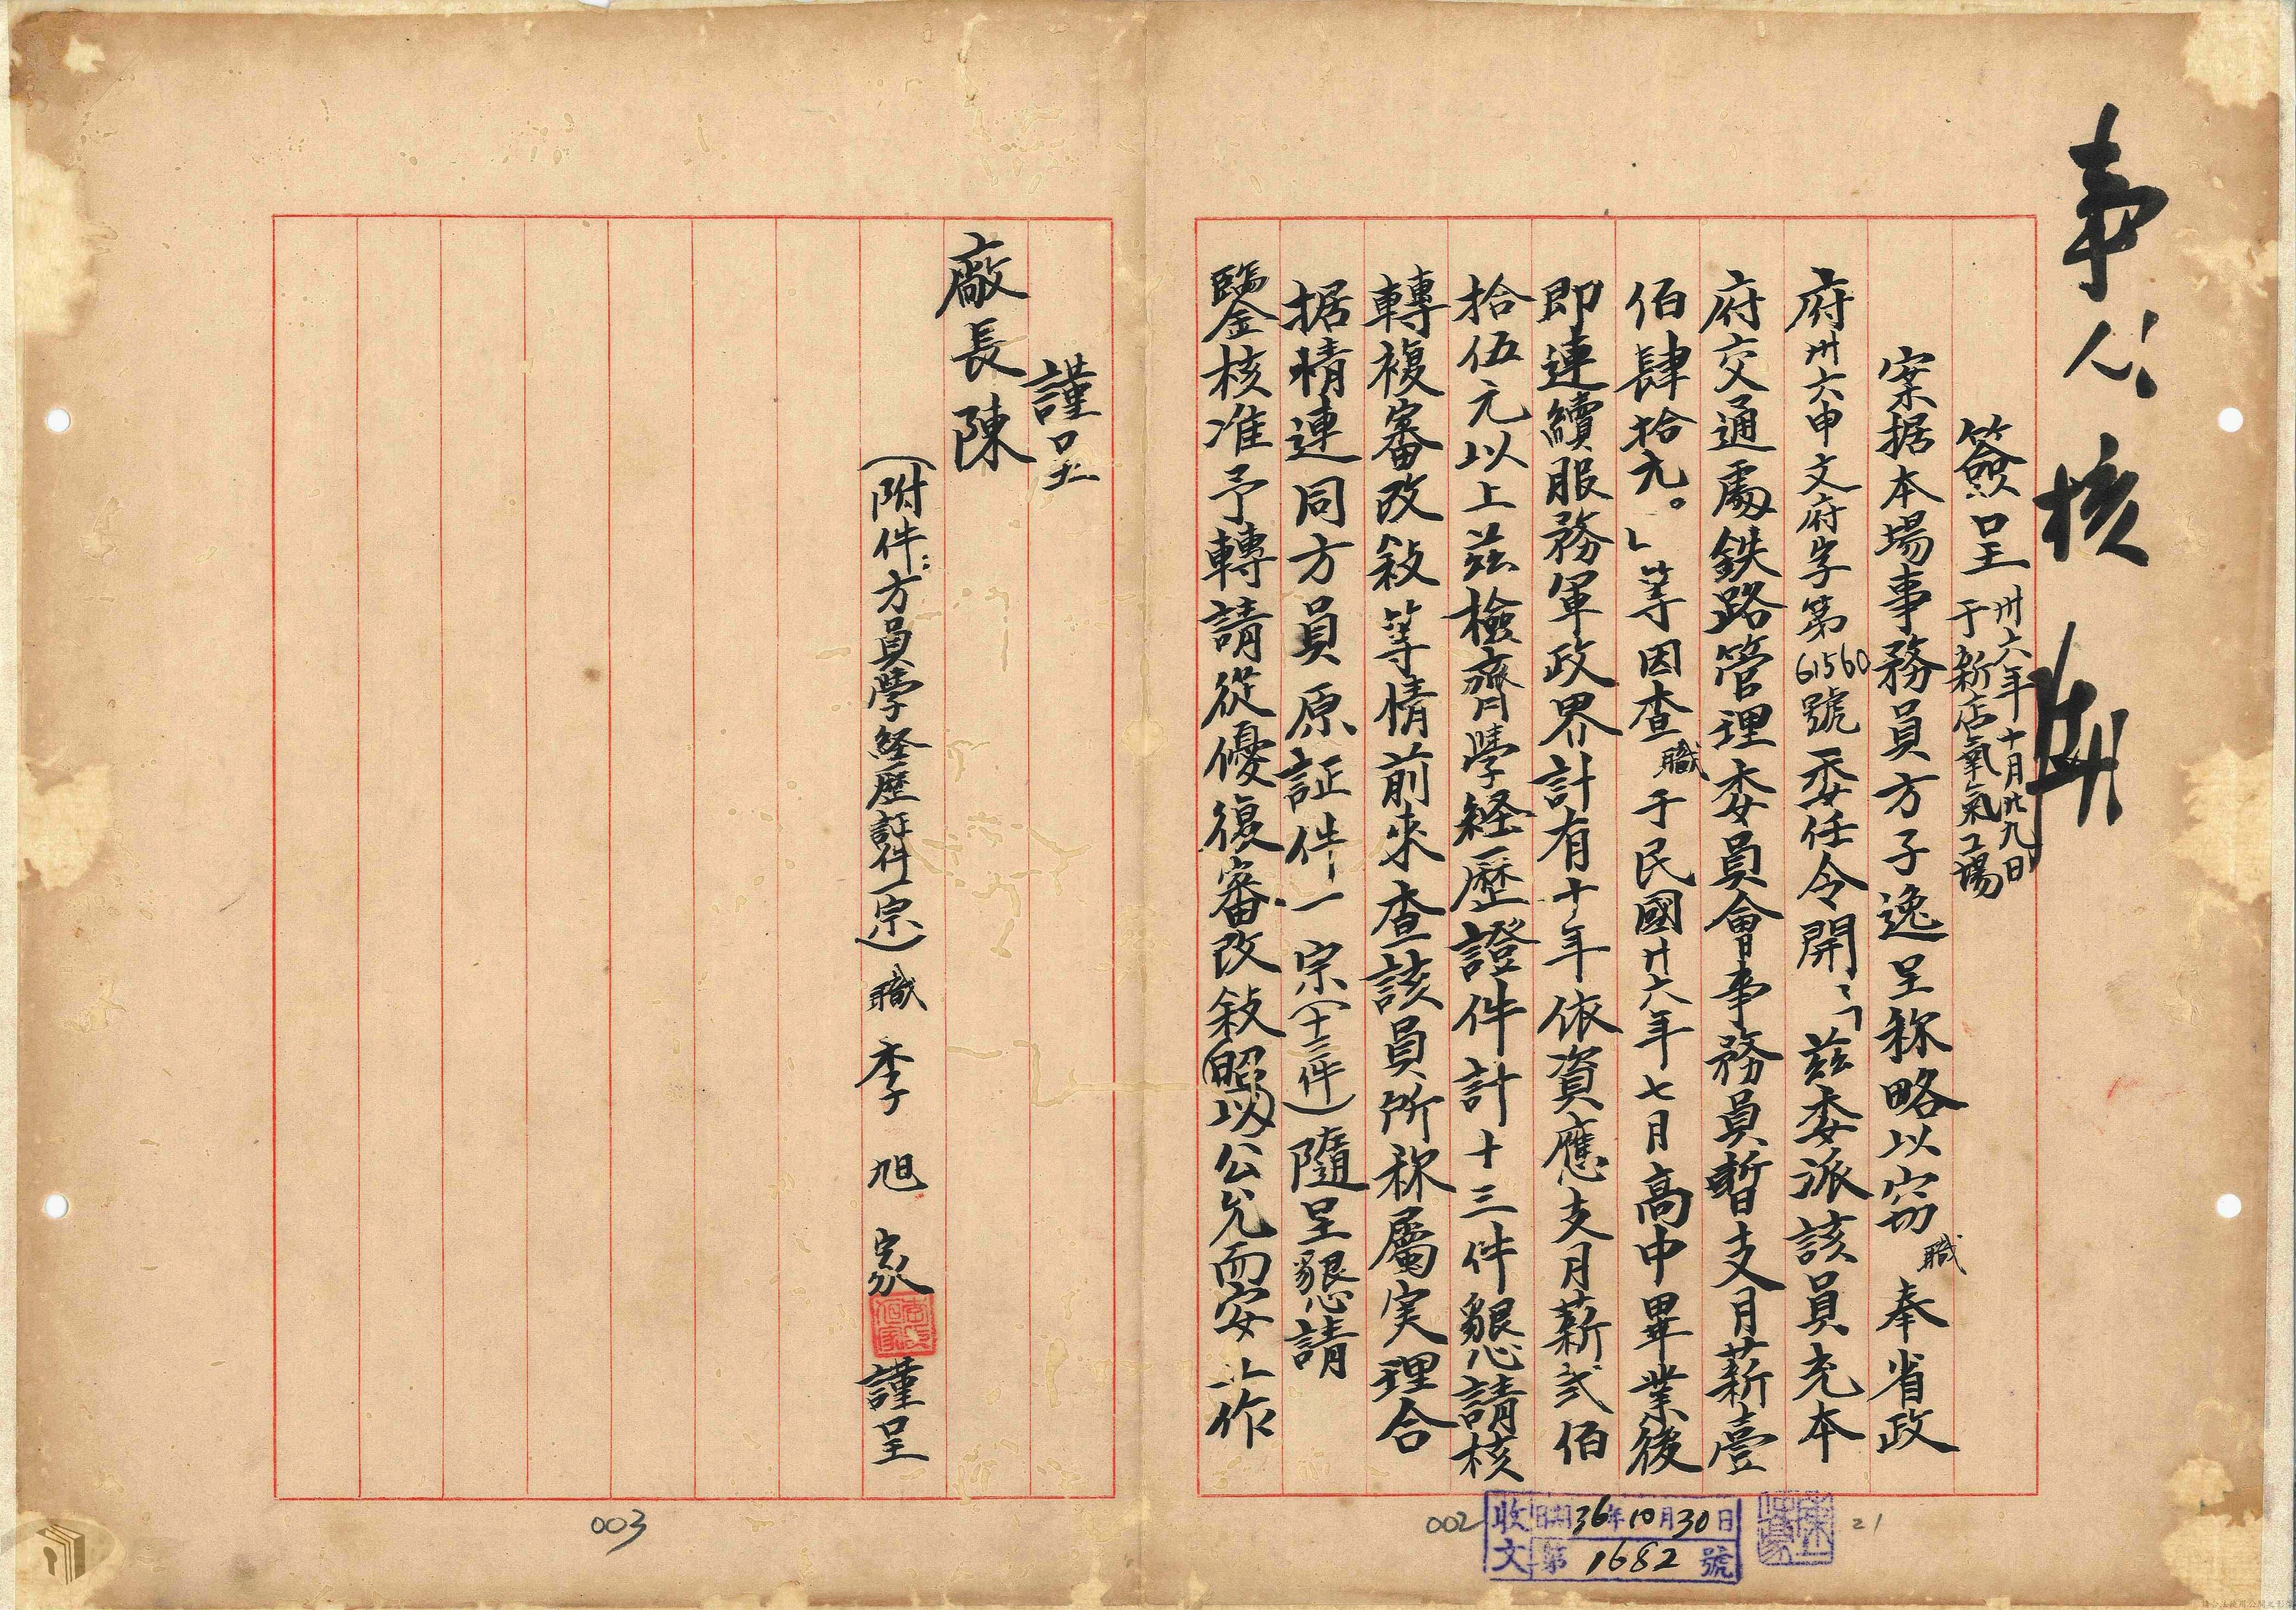 事人核
簽呈 卅六年十月廿九日
于新店氧氣工場
案据本場事務員方子逸呈称略以窃職奉省政
府卅六申文府字第61560號委任令開：「茲委派該員充本
府交通處鉄路管理委員會事務員暫支月薪壹
佰肆拾元。」等因查職于民國廿六年七月高中畢業後
即連續服務軍政界計有十年依資應支月薪弍佰
拾伍元以上茲檢齊學経歷證件計十三件懇請核
轉複審改敍等情前來查該員所称屬実理合
据情連同方員原証件一宗(十三件)隨呈懇請
鑒核准予轉請從優復審改敍(照以)公允而安工作
謹呈
廠長陳
(附件：方員學経歷証件一宗)職李旭家謹呈
002
收文 日期36年10月30日
第1682號
21
003